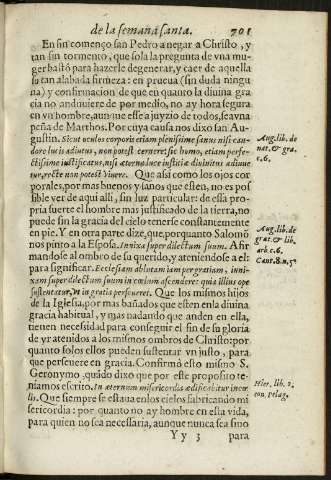 de la semana santa. 701
En fin començo san Pedro a negar a Christo, y
tan sin tormento, que sola la pregunta de vna mu
ger bastó para hazerle degenerar, y caer de aquella
tan alabada firmeza: en prueua (sin duda ningu
na) y confirmacion de que en quanto la diuina gra
cia no anduuiere de por medio, no ay hora segura
en vn hombre, aunque esse a juyzio de todos, sea vna
peña de Marthos. Por cuya causa nos dixo san Au-
gustin. Sicut oculus corporis etiam plenissime sanus nisi can-
dore lucis adiutus, non potest cernere: sic homo, etiam perfe-
ctissime iustificatus, nisi æterna luce iustitiæ diuinitus adiuue
tur, recte non potest viuere. Que assi como los ojos cor
porales, por mas buenos y sanos que esten, no es pos
sible ver de aqui alli, sin luz particular: de essa pro-
pria suerte el hombre mas justificado de la tierra, no
puede sin la gracia del cielo tenerse constantemente
en pie. Y en otra parte dize, que, porquanto Salomõ
nos pinto a la Esposa. Innixa super dilectum suum. Afir
mandose al ombro de su querido, y ateniendose a el:
para significar. Ecclesiam ablutam iam per gratiam, inni-
xam super dilectum suum in cælum ascendere: quia illius ope
sustentatur, vt in gratia perseueret. Que los mismos hijos
de la Iglesia, por mas bañados que esten en la diuina
gracia habitual, y mas nadando que anden en ella,
tienen necessidad para conseguir el fin de su gloria
de yr atenidos a los mismos ombros de Christo: por
quanto solos ellos pueden sustentar vn justo, para
que perseuere en gracia. Confirmó esto mismo S.
Geronymo, quãdo dixo que por este proposito te-
niamos escrito. In æternum misericordia ædificabitur in cœ-
lis. Que siempre se estaua en los cielos fabricando mi
sericordia: por quanto no ay hombre en esta vida,
para quien no sea necessaria, aunque nunca sea sino
Yy 3 para
Aug. lib. de
nat. & gra.
c. 6.
Aug. lib. de
grat. & lib.
arb. c. 6.
Cant. 8. n. 5
Hier. lib. 2.
con. pelag.